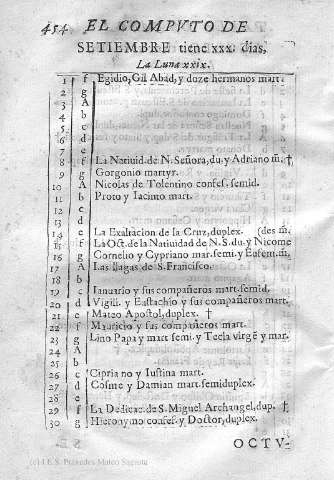 454 EL COMPVTO DE
SETIEMBRE tiene xxx. dias,
La Luna xxix.
1 f Egidio, Gil Abad, y doze hermanos mart.
2 g
3 A
4 b
5 c
6 d
7 e
8 f La Natiuid. de N. Señora, du. y Adriano m. †
9 g Gorgonio martyr.
10 A Nicolas de Tolentino confes. semid.
11 b Proto y Iacinto mart.
12 c
13 d
14 e La Exaltacion de la Cruz, duplex. (des m.
15 f La Oct. de la Natiuidad de N. S. du y Nicome
16 g Cornelio y Cypriano mar. semi. y Eufem. m.
17 A Las llagas de S. Francisco.
18 b
19 c Ianuario y sus compañeros mart. semid.
20 d Vigili. y Eustachio y sus compañeros mart.
21 e Mateo Apostol, duplex. †
22 f Mauricio y sus compañeros mart.
23 g Lino Papa y mart semi. y Tecla virgē y mar.
24 A
25 b
26 c Cipriano y Iustina mart.
27 d Cosme y Damian mart. semiduplex.
28 e
29 f La Dedicac. de S. Miguel Archangel, dup. †
30 g Hieronymo confes. y Doctor, duplex.
OCTV-
(c) I.E.S. Práxedes Mateo Sagasta